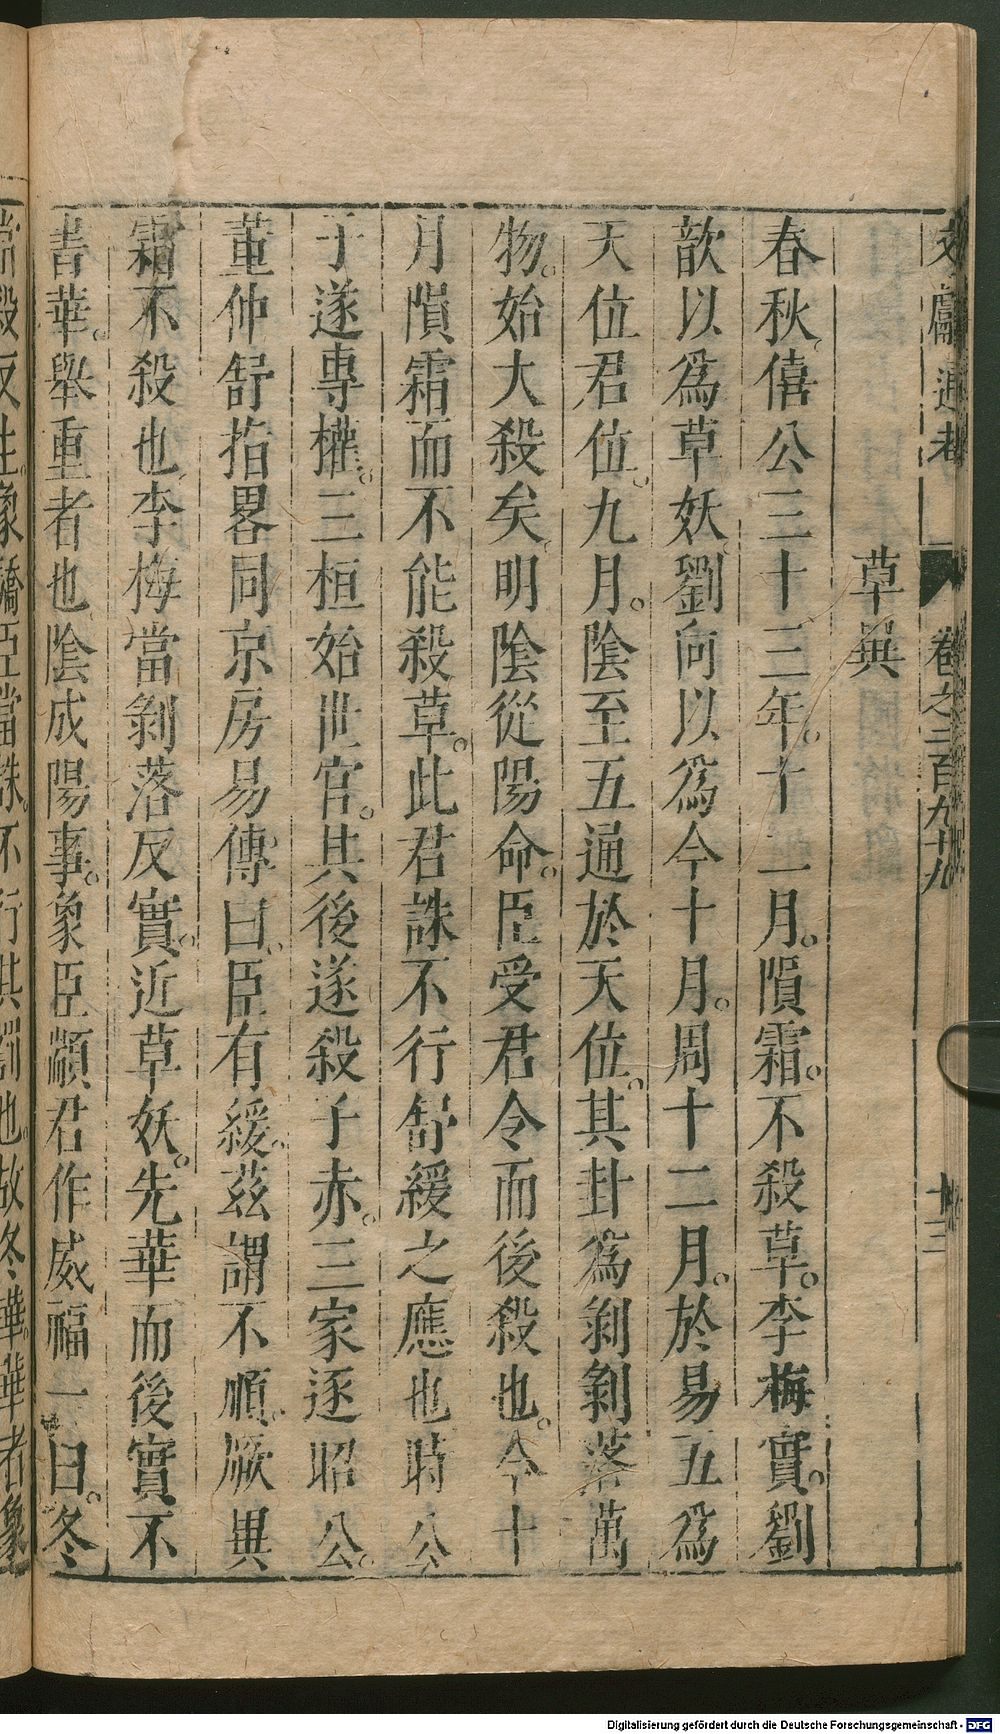 文獻通考 卷之二百九十九 十三
草異
春秋僖公三十三年。十二月。隕霜。不殺草。李梅實。劉
歆以爲草妖。劉向以爲今十月。周十二月。於易五爲
天位君位。九月。陰至五通於天位。其卦爲剝剝落萬
物。始大殺矣。明陰從陽命。臣受君令而後殺也。今十
月隕霜而不能殺草。此君誅不行舒緩之應也時公
子遂專權。三桓始世官。其後遂殺子赤。三家逐昭公。
董仲舒指畧同京房易傳曰。臣有緩。茲謂不順。厥異
霜不殺也。李梅當剝落反實。近草妖。先華而後實不
書華。舉重者也陰成陽事。象臣顓君作威福一曰。冬
當殺反生。象驕臣當誅。不行其罰也。故冬華。華者象
Digitalisierung gefördert durch die Deutsche Forschungsgemeinschaft - DFG